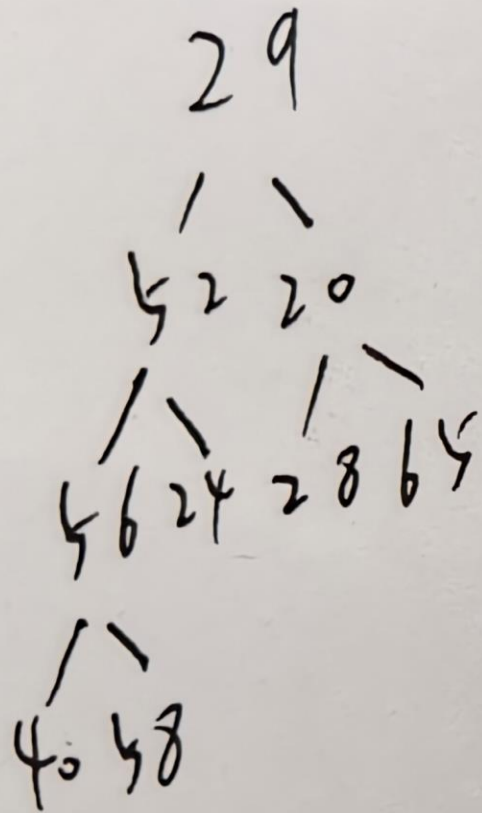 29
52 20
56 24 28 65
40 58